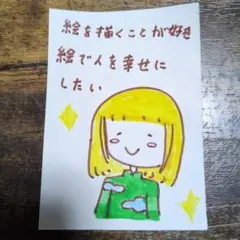 絵を描くことが好き
絵で人を幸せに
したい